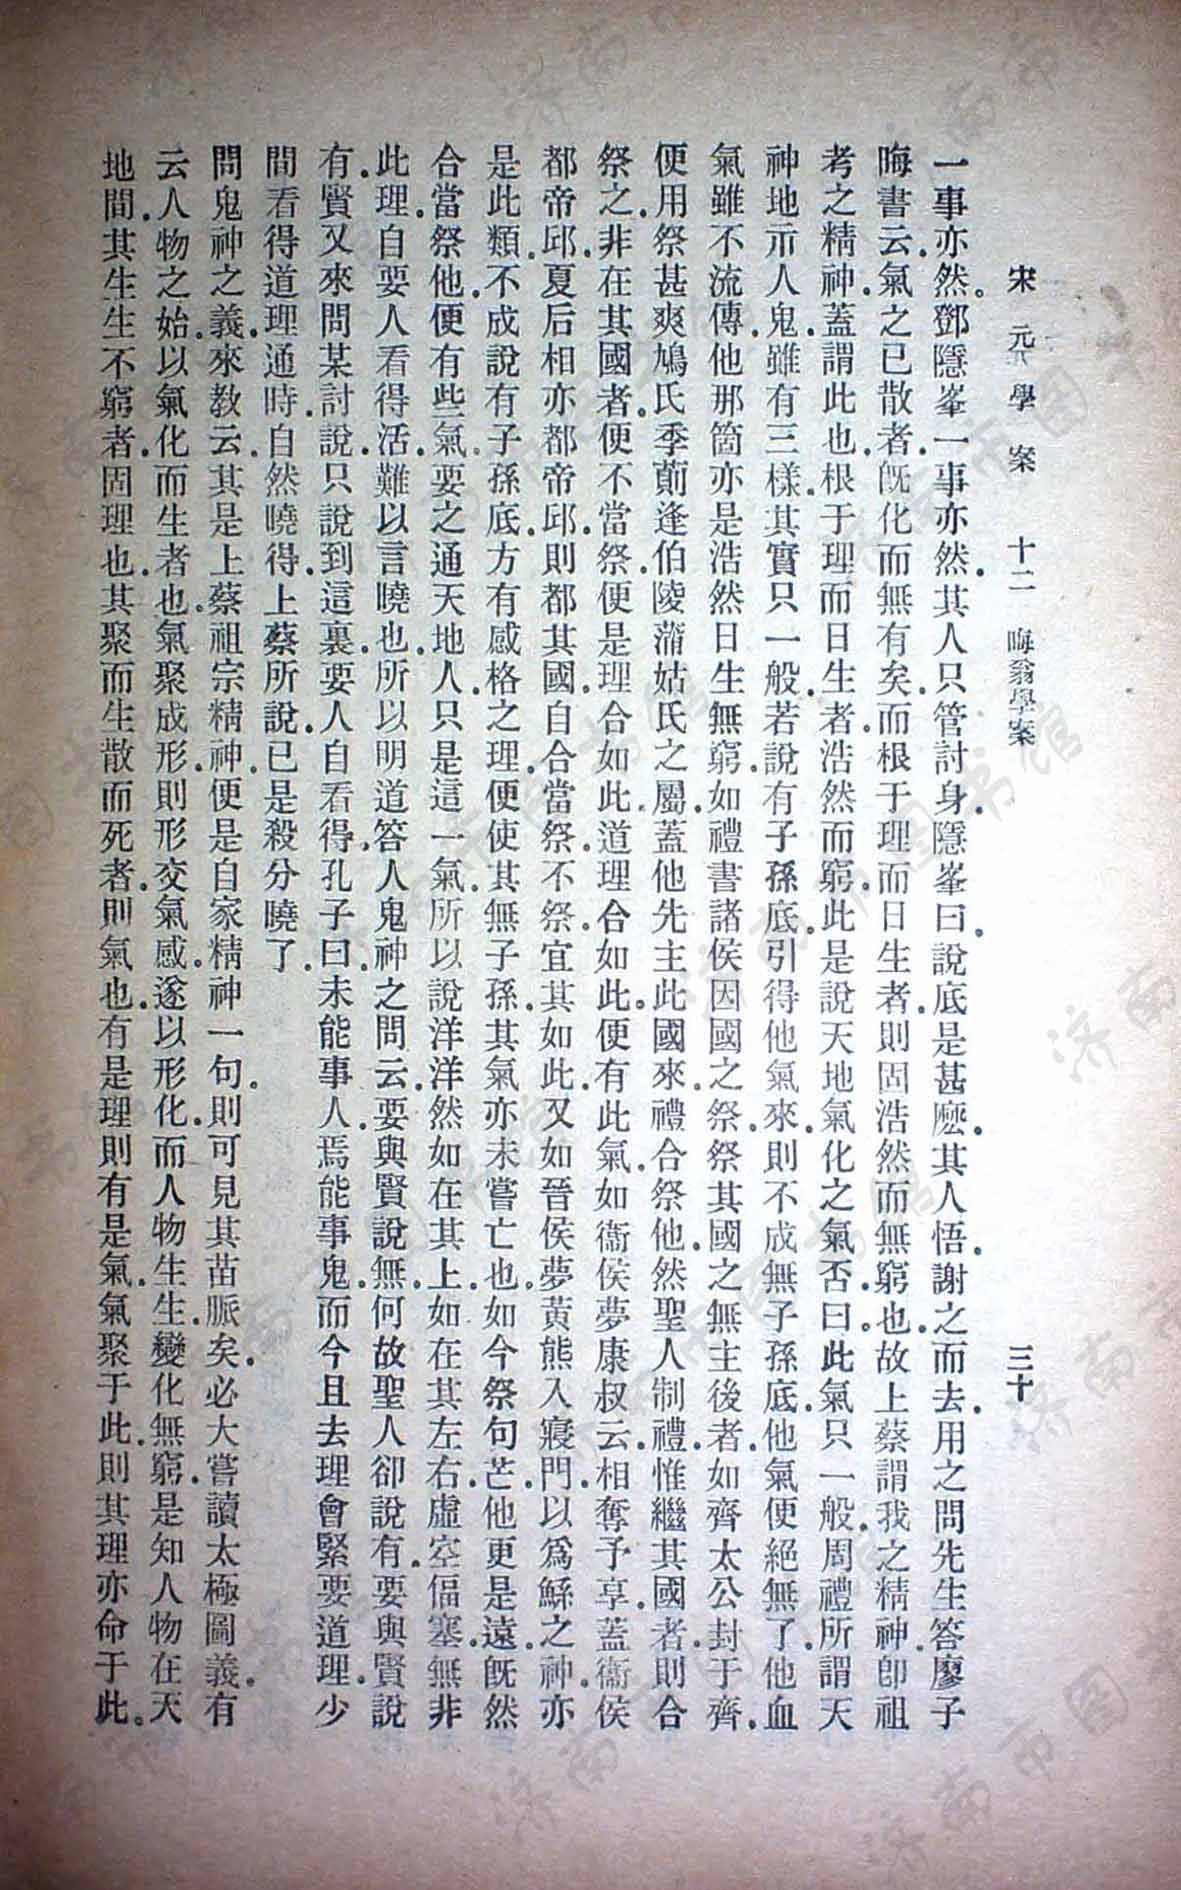 宋元學案 十二 晦翁學案 三十
一事亦然。鄧隱峯一事亦然.其人只管討身.隱峯曰.說底是甚麽.其人悟.謝之而去.用之問先生答廖子
晦書云.氣之已散者.旣化而無有矣.而根于理而日生者.則固浩然而無窮也.故上蔡謂我之精神.卽祖
考之精神.蓋謂此也.根于理而日生者.浩然而窮.此是說天地氣化之氣否。曰.此氣只一般.周禮所謂天
神地示人鬼.雖有三樣.其實只一般.若說有子孫底.引得他氣來.則不成無子孫底.他氣便絕無了.他血
氣雖不流傳.他那箇亦是浩然日生無窮.如禮書諸侯因國之祭.祭其國之無主後者.如齊太公封于齊.
便用祭甚爽鳩氏季萴逢伯陵蒲姑氏之屬.蓋他先主此國來.禮合祭他.然聖人制禮.惟繼其國者.則合
祭之.非在其國者.便不當祭.便是理合如此.道理合如此.便有此氣.如衞侯夢康叔云.相奪予享.蓋衞侯
都帝邱.夏后相亦都帝邱.則都其國.自合當祭.不祭.宜其如此.又如晉侯夢黃熊入寢門.以爲鯀之神.亦
是此類.不成說有子孫底.方有感格之理.便使其無子孫.其氣亦未嘗亡也.如今祭句芒.他更是遠.旣然
合當祭他.便有些氣。要之通天地人.只是這一氣.所以說洋洋然如在其上.如在其左右.虛空偪塞.無非
此理.自要人看得活.難以言曉也.所以明道答人鬼神之問云.要與賢說無.何故聖人卻說有.要與賢說
有.賢又來問某討.說只說到這裏.要人自看得.孔子曰.未能事人.焉能事鬼.而今且去理會緊要道理.少
間看得道理通時.自然曉得.上蔡所說.已是殺分曉了.
問鬼神之義.來教云.其是上蔡祖宗精神.便是自家精神一句.則可見其苗脈矣.必大嘗讀太極圖義.有
云.人物之始.以氣化而生者也.氣聚成形.則形交氣感.遂以形化.而人物生生.變化無窮.是知人物在天
地間.其生生不窮者.固理也.其聚而生.散而死者.則氣也.有是理.則有是氣.氣聚于此.則其理亦命于此.